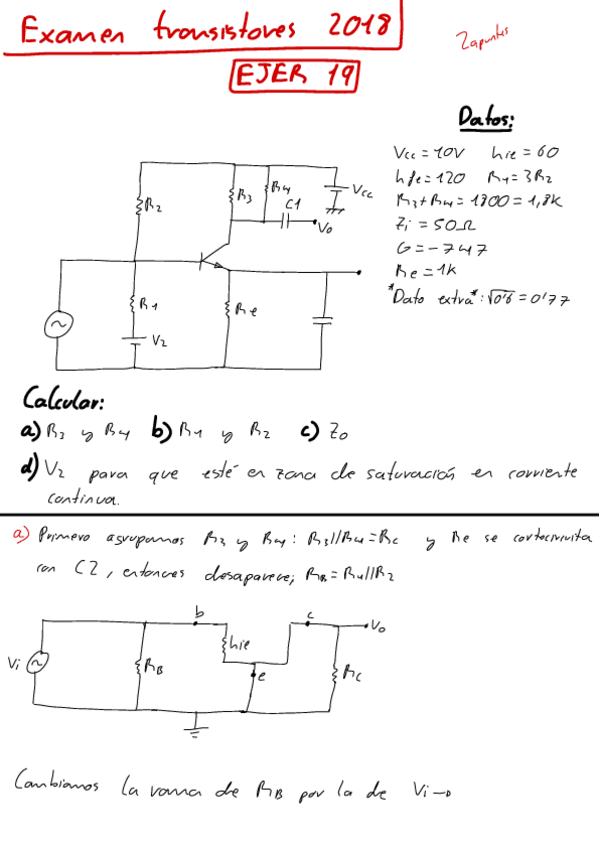 Examen transistores 2018
2 apuntes
EJER 19
Datos:
Vcc = 10V hie = 60
hfe = 120 R1 = 3R2
R3 + R4 = 1800 = 1,8K
Zi = 50Ω
G = -747
Re = 1k
*Dato extra*: √0'6 = 0'77
R2
R3
R4
C1
Vcc
Vo
R1
Re
V2
Calcular:
a) R3 y R4 b) R1 y R2 c) Zo
d) V2 para que esté en zona de saturación en corriente
continua.
a) Primero agrupamos R3 y R4: R3//R4 = Rc y Re se cortocircuita
con C2, entonces desaparece; RB = R1//R2
b
c
Vo
hie
Vi
RB
e
Rc
Cambiamos la rama de RB por la de Vi →